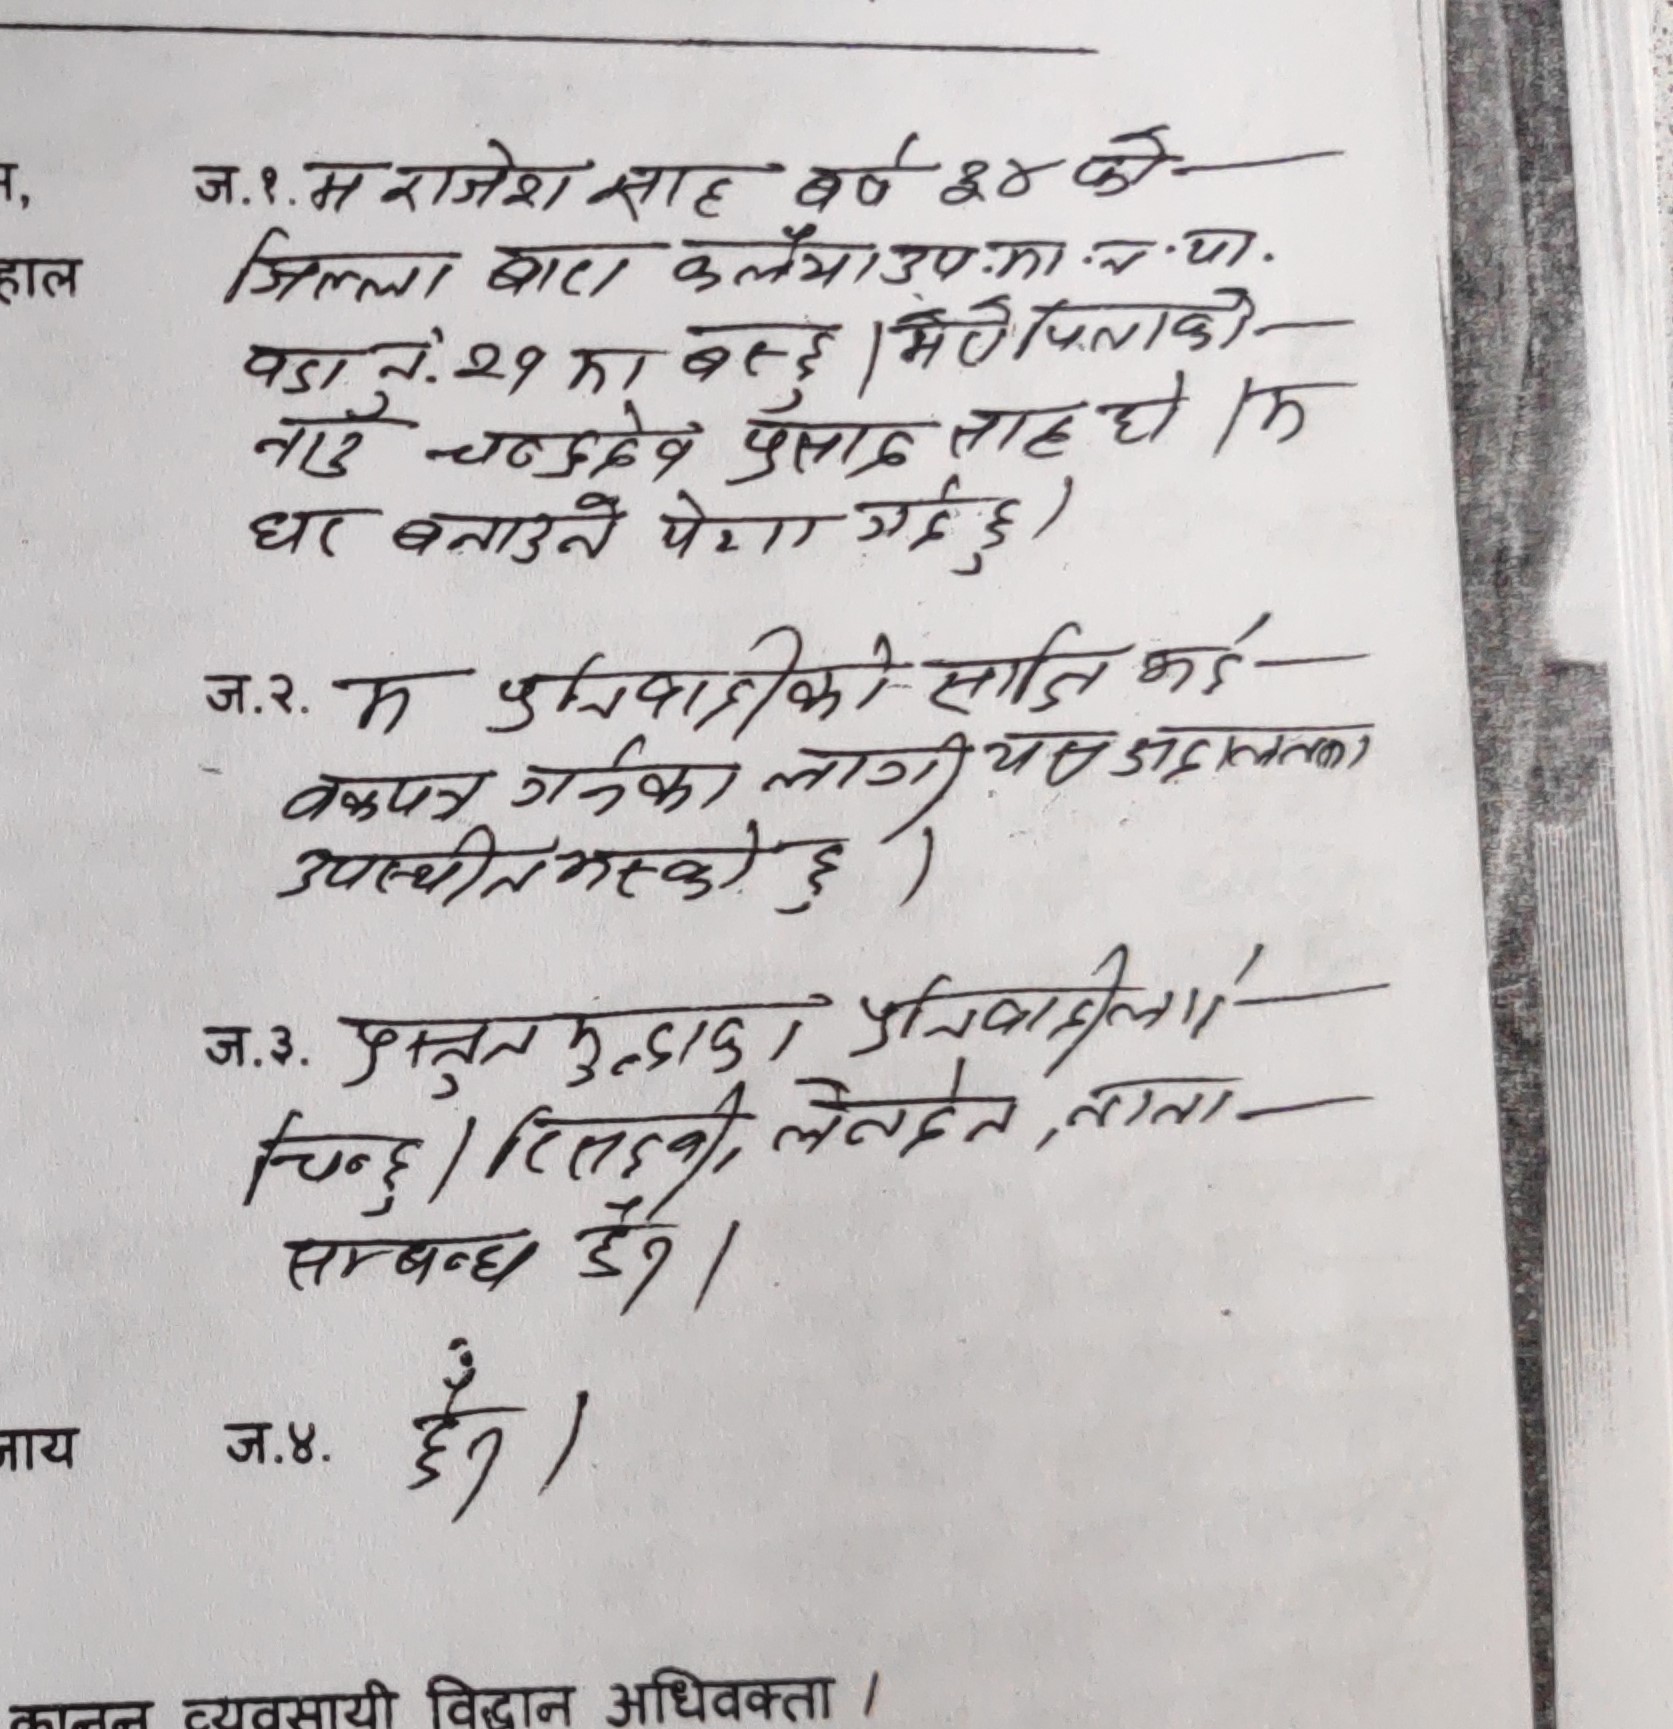 ज.१. म राजेश साह बर्ष ३४ को
हाल जिल्ला बारा कलैया उप.म.न.पा.
वडा नं. २१ मा बस्छु । मेरो पिताको
नाउँ चन्द्रदेव प्रसाद साह हो । म
घर बनाउने पेशा गर्दछु ।
ज.२. म प्रतिवादीको साक्षि भई
वकपत्र गर्नका लागी यस अदालतमा
उपस्थीत भएको छु ।
ज.३. प्रस्तुत मुद्दाका प्रतिवादीलाई
चिन्छु । रिसइवी, लेनदेन, नाता
सम्बन्ध छैन ।
ज.४. छैन ।
कानून व्यवसायी विद्धान अधिवक्ता ।